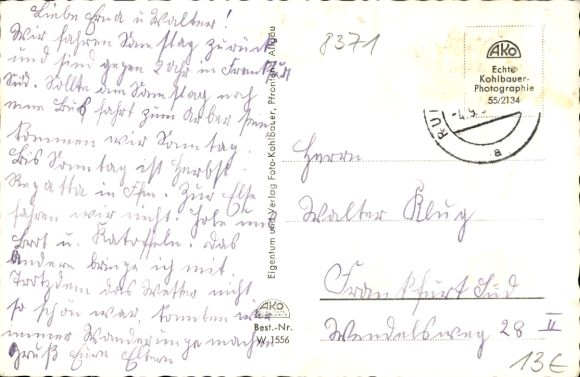 Liebe Erna u Walter!
Wir fahren Samstag zurück
und sind gegen 2 Uhr in Frankfurt
Süd. Sollte am Samstag noch
eine Bus fahrt zum Arber sein
kommen wir Sonntag.
Bis Sonntag ist Herbst-
Regatta in Ffm. Zur Else
fahren wir nicht. Hole
Brot u. Kartoffeln. Das
andere bringe ich mit
Trotzdem das Wetter nicht
so schön war, konnten wir
immer Wanderunge machen
Gruß Eure Eltern
8371
AKO
Echte
Kohlbauer-
Photographie
55/2134
-4.9.
a
Eigentum und Verlag Foto-Kohlbauer, Pfronten, Allgäu
AKO
Best.-Nr.
W 1556
Herrn
Walter Klug
Frankfurt Süd
Wendelsweg 28 II
13€